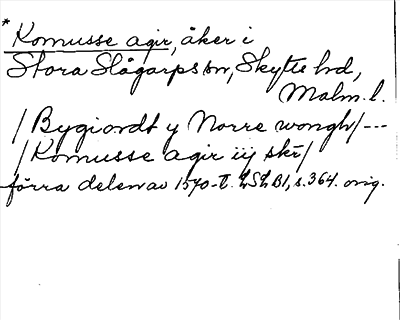 *Komusse agir, åker i
Stora Slågarps sn, Skytts hd,
Malm. l.
/Bygiordt y Norre wongh/---
/Komusse agir iij skr/
förra delen av 1570-t. LSLB1, s. 364. orig.